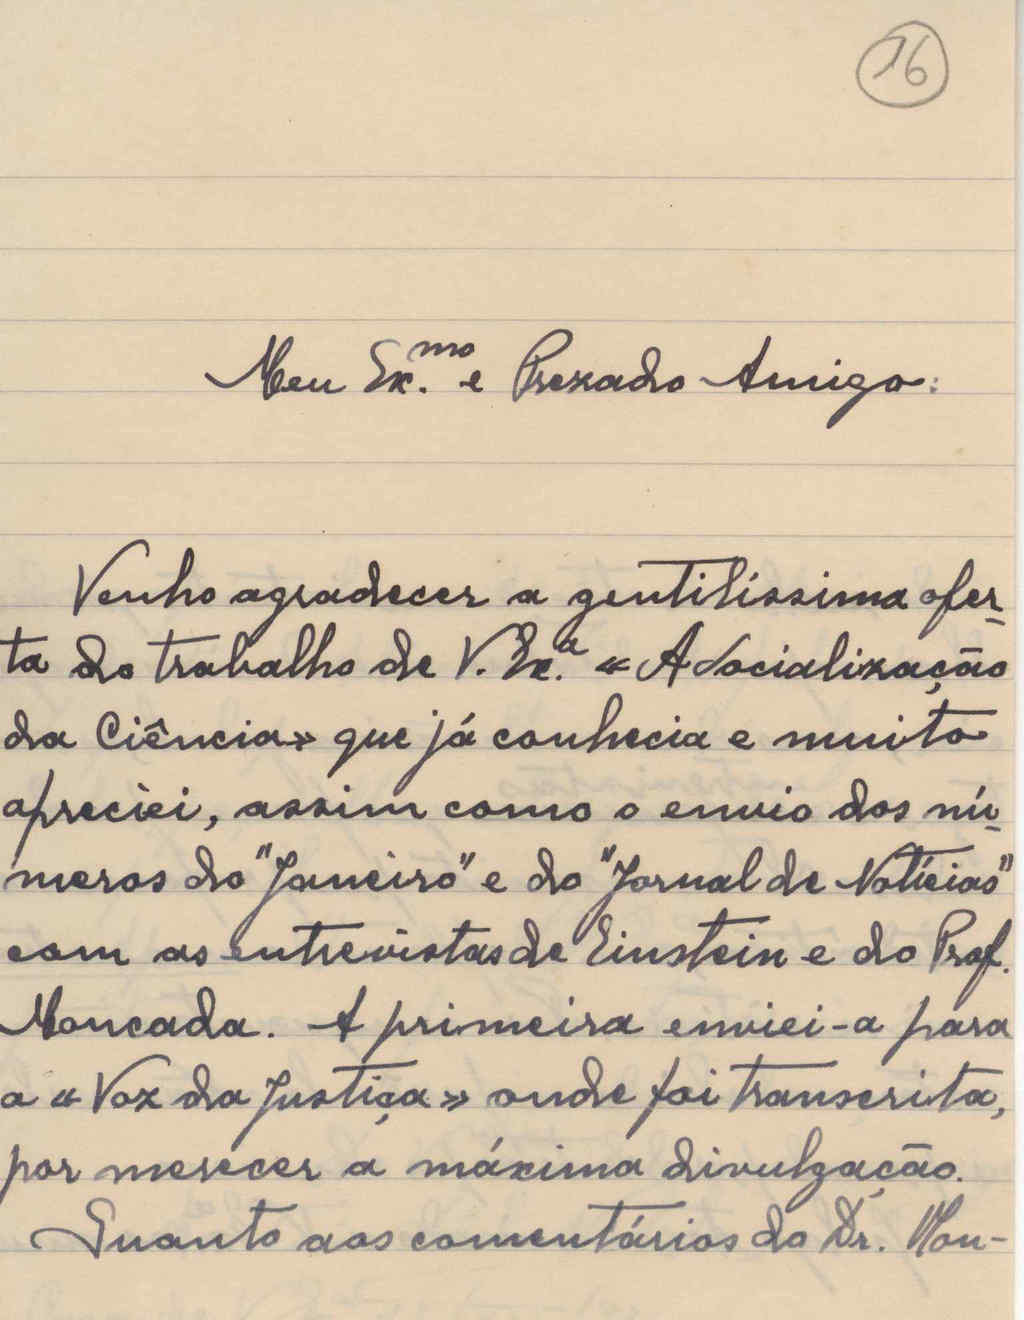 16
Meu Ex.mo e Prezado Amigo:
Venho agradecer a gentilíssima ofer-
ta do trabalho de V. Ex.a « A Socialização
da Ciência» que já conhecia e muito
apreciei, assim como o envio dos nú-
meros do "Janeiro" e do "Jornal de Notícias"
com as entrevistas de Einstein e do Prof.
Moncada. A primeira enviei-a para
a « Voz da Justiça» onde foi transcrita,
por merecer a máxima divulgação.
Quanto aos comentários do Dr. Mon-